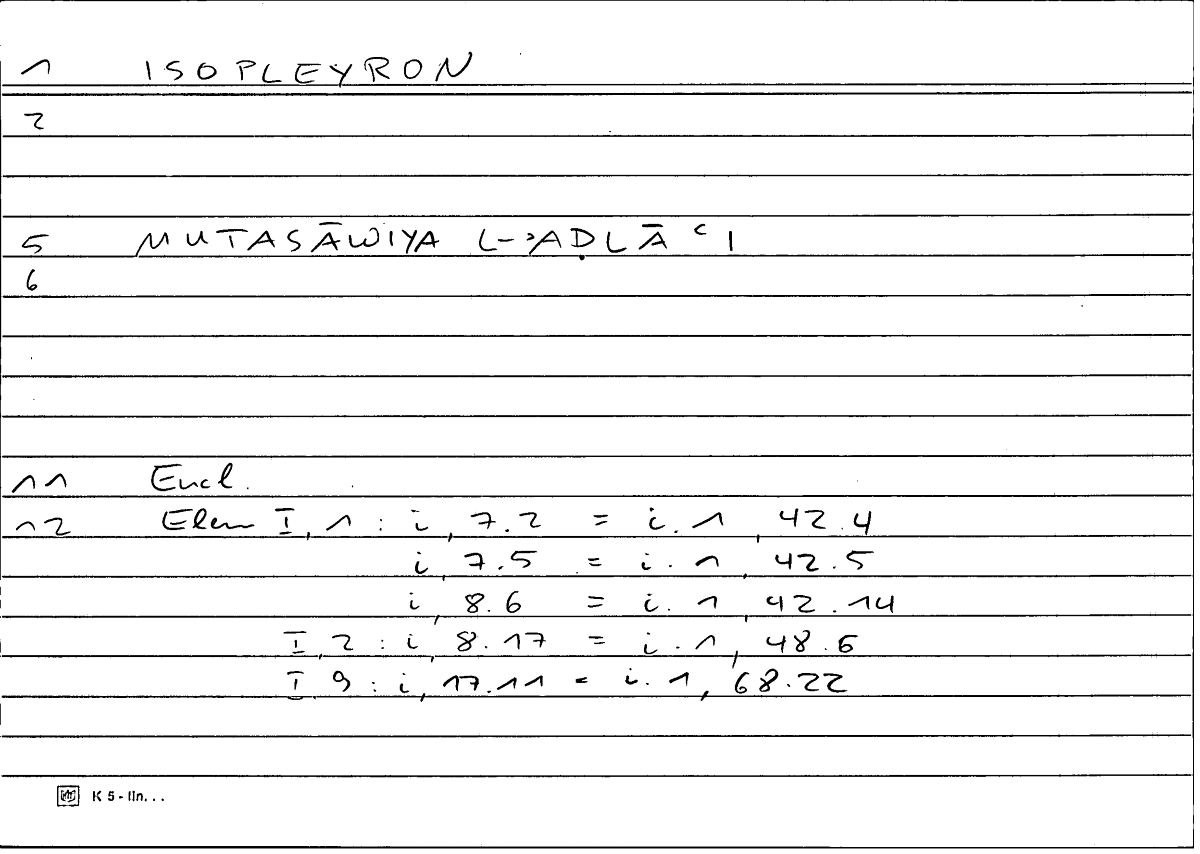 1 ISOPLEYRON
2
5 MUTASĀWIYA L-ʾAḌLĀʿI
6
11 Eucl.
12 Elem I, 1 : i, 7.2 = i. 1, 42.4
i, 7.5 = i. 1, 42.5
i, 8.6 = i. 1, 42.14
I, 2 : i, 8.17 = i. 1, 48.6
I. 9 : i, 17.11 = i. 1, 68.22
K 5 - lin. . .